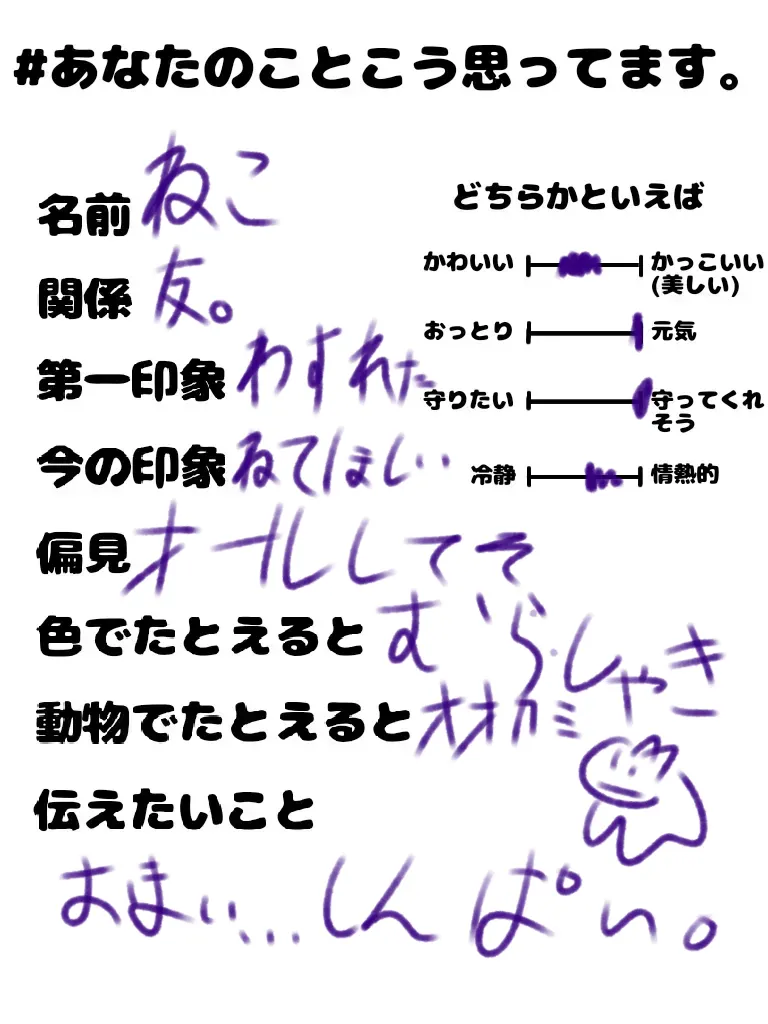 #あなたのことこう思ってます。
名前 ねこ
関係 友。
第一印象 わすれた
今の印象 ねてほしい..
偏見 オールしてそ
色でたとえると むらしゃき
動物でたとえると オオカミ
伝えたいこと
おまい...しんぱい。
どちらかといえば
かわいい かっこいい
(美しい)
おっとり 元気
守りたい 守ってくれ
そう
冷静 情熱的